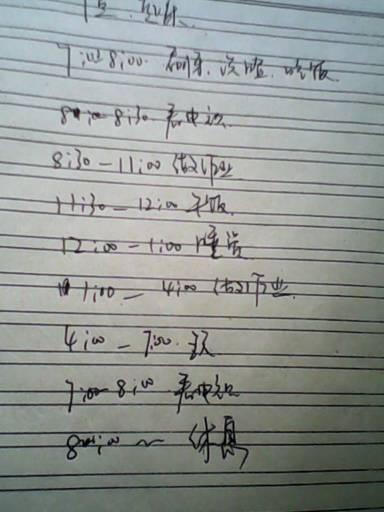 7:00-8:00 刷牙.洗脸.吃饭
8:00-8:30 看电视
8:30-11:00 做作业
11:30-12:00 午饭
12:00-1:00 睡觉
1:00-4:00 做作业
4:00-7:00 玩
7:00-8:00 看电视
8:00~ 休息